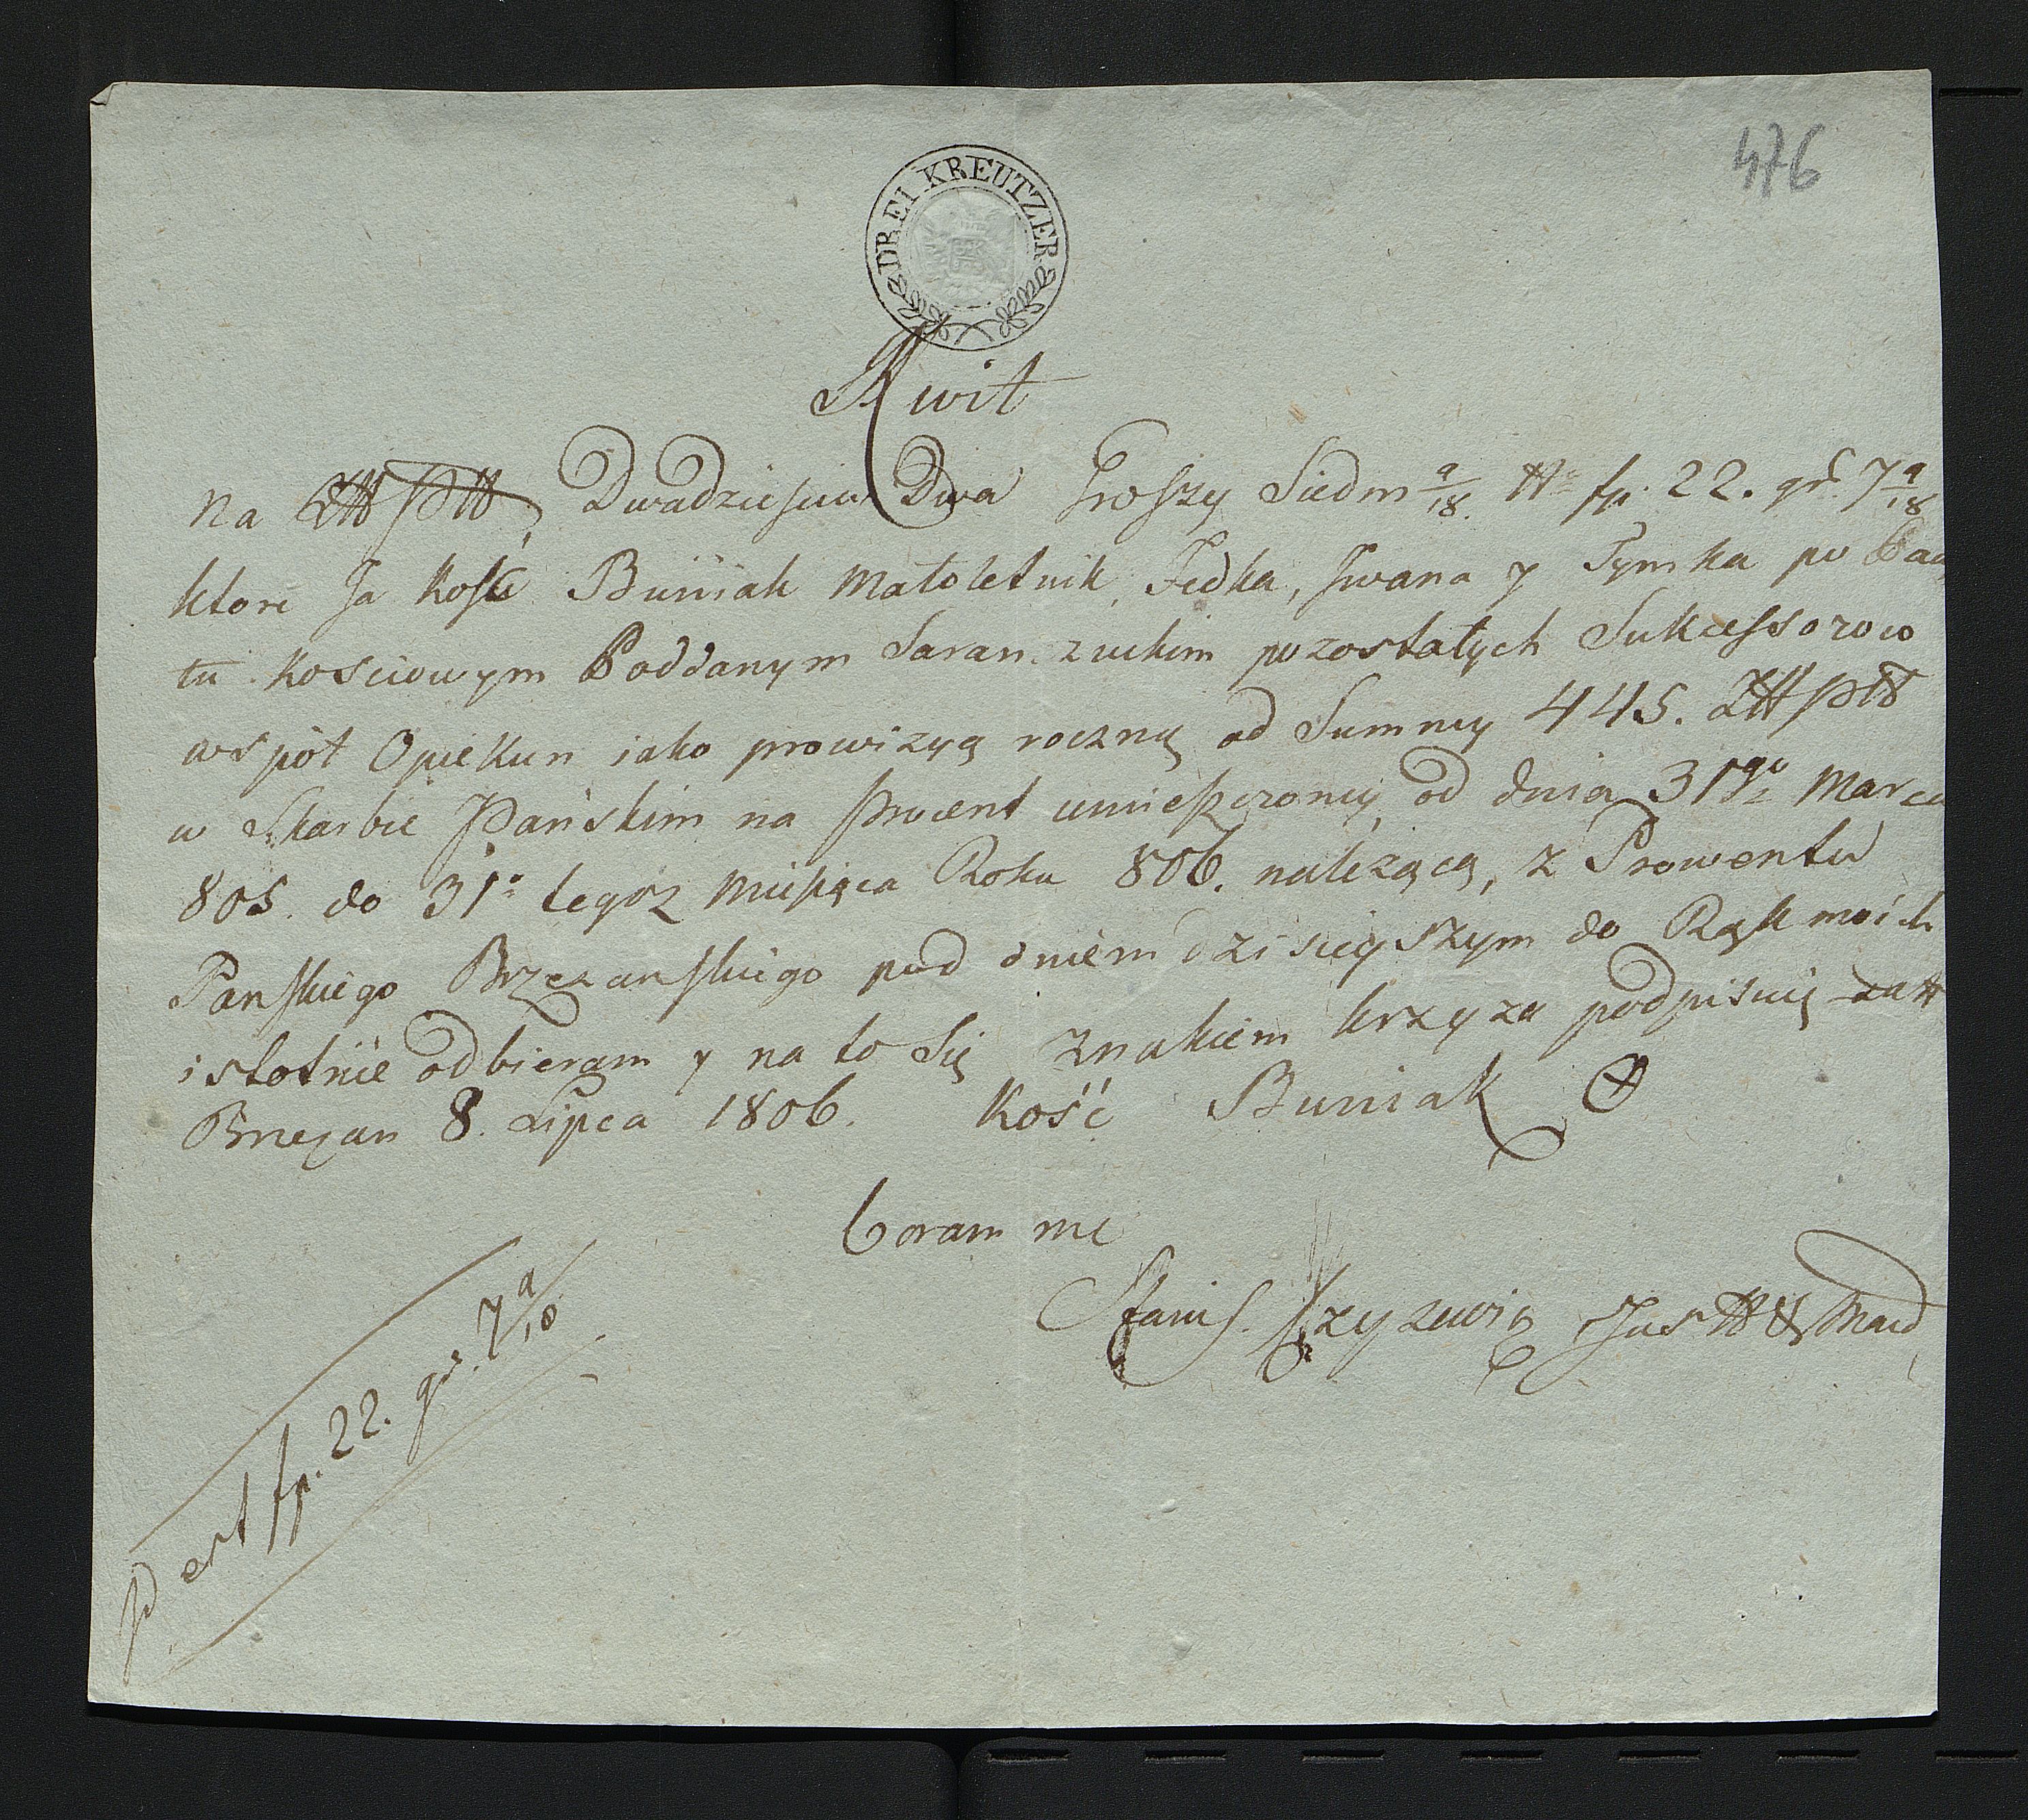 476
DREI KREUTZER
Kwit
Na Złł Pll, Dwadzieścia Dwa Groszy Siedm 9/18. fp. 22. gr. 7 9/18
które Ja Kość Buniak małoletnik Fedka, Iwana y Tymka po
tu Kościowym Poddanym Saranczuckim pozostałych Sukcessorow
wspót Opiekun iako prowizyą roczną od Summy 445. Złł Pll
w Skarbie Pańskim na Procent umieszczoney od dnia 31go Marca
805. do 31o tegoż Miesiąca Roku 806. należącą, z Prowentu
Panskiego Brzezanskiego pod dniem dzisieyszym do Rąk moich
istotnie odbieram y na to Się znakiem krzyża podpisuię
Brzezan 8. Lipca 1806. Kość Buniak
Coram me
Stanis. Mand
Pert fp. 22. gr. 7 9/18